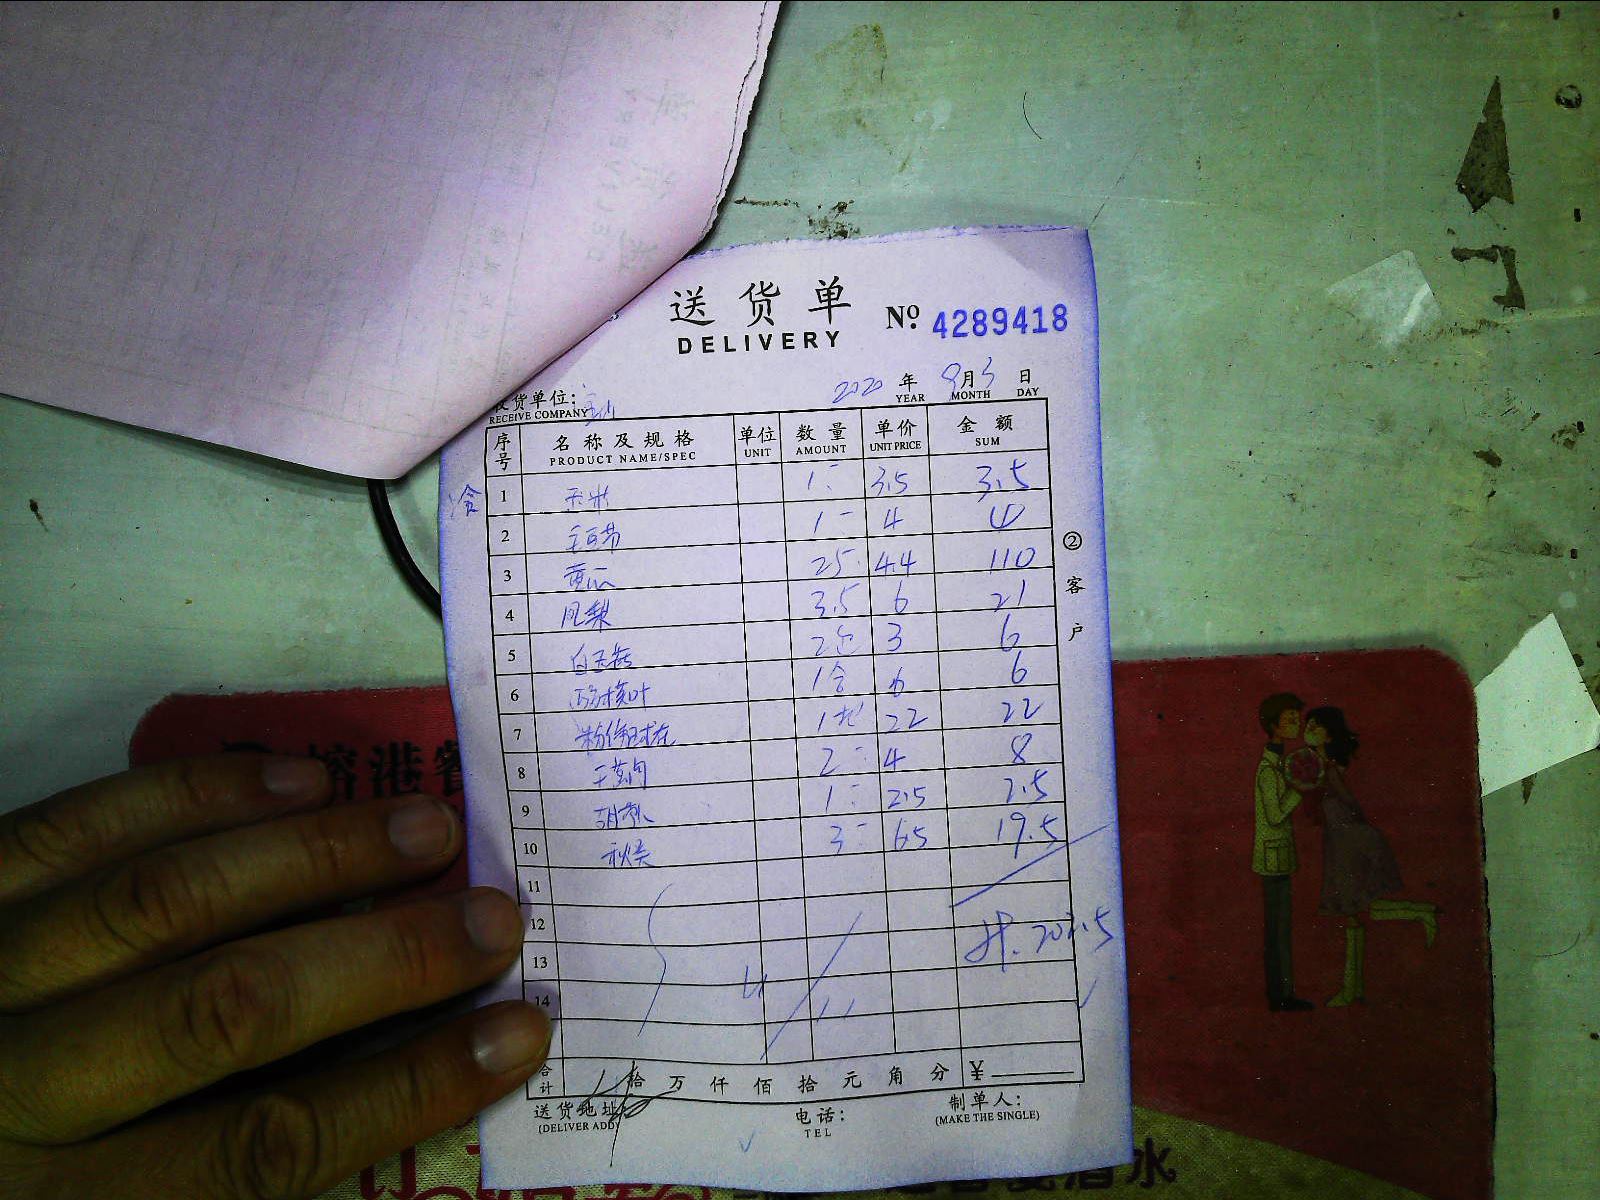 送货单 № 4289418
DELIVERY
2020 年 9月3 日
YEAR MONTH DAY
货单位:
RECEIVE COMPANY
序号 名称及规格 单位 数量 单价 金额
PRODUCT NAME/SPEC UNIT AMOUNT UNIT PRICE SUM
1 玉米 1- 3.5 3.5
2 1- 4 4
3 黄瓜 25 4.4 110
4 凤梨 3.5 6 21
5 白玉菇 2包 3 6
6 1合 6 6
7 1 22 22
8 2- 4 8
9 1- 2.5 2.5
10 秋葵 3- 6.5 19.5
11
12
计.202.5
13
14
合计 拾万仟佰拾元角分 ¥
送货地址: 电话: 制单人:
(DELIVER ADD) TEL (MAKE THE SINGLE)
②客户
榕港餐
水